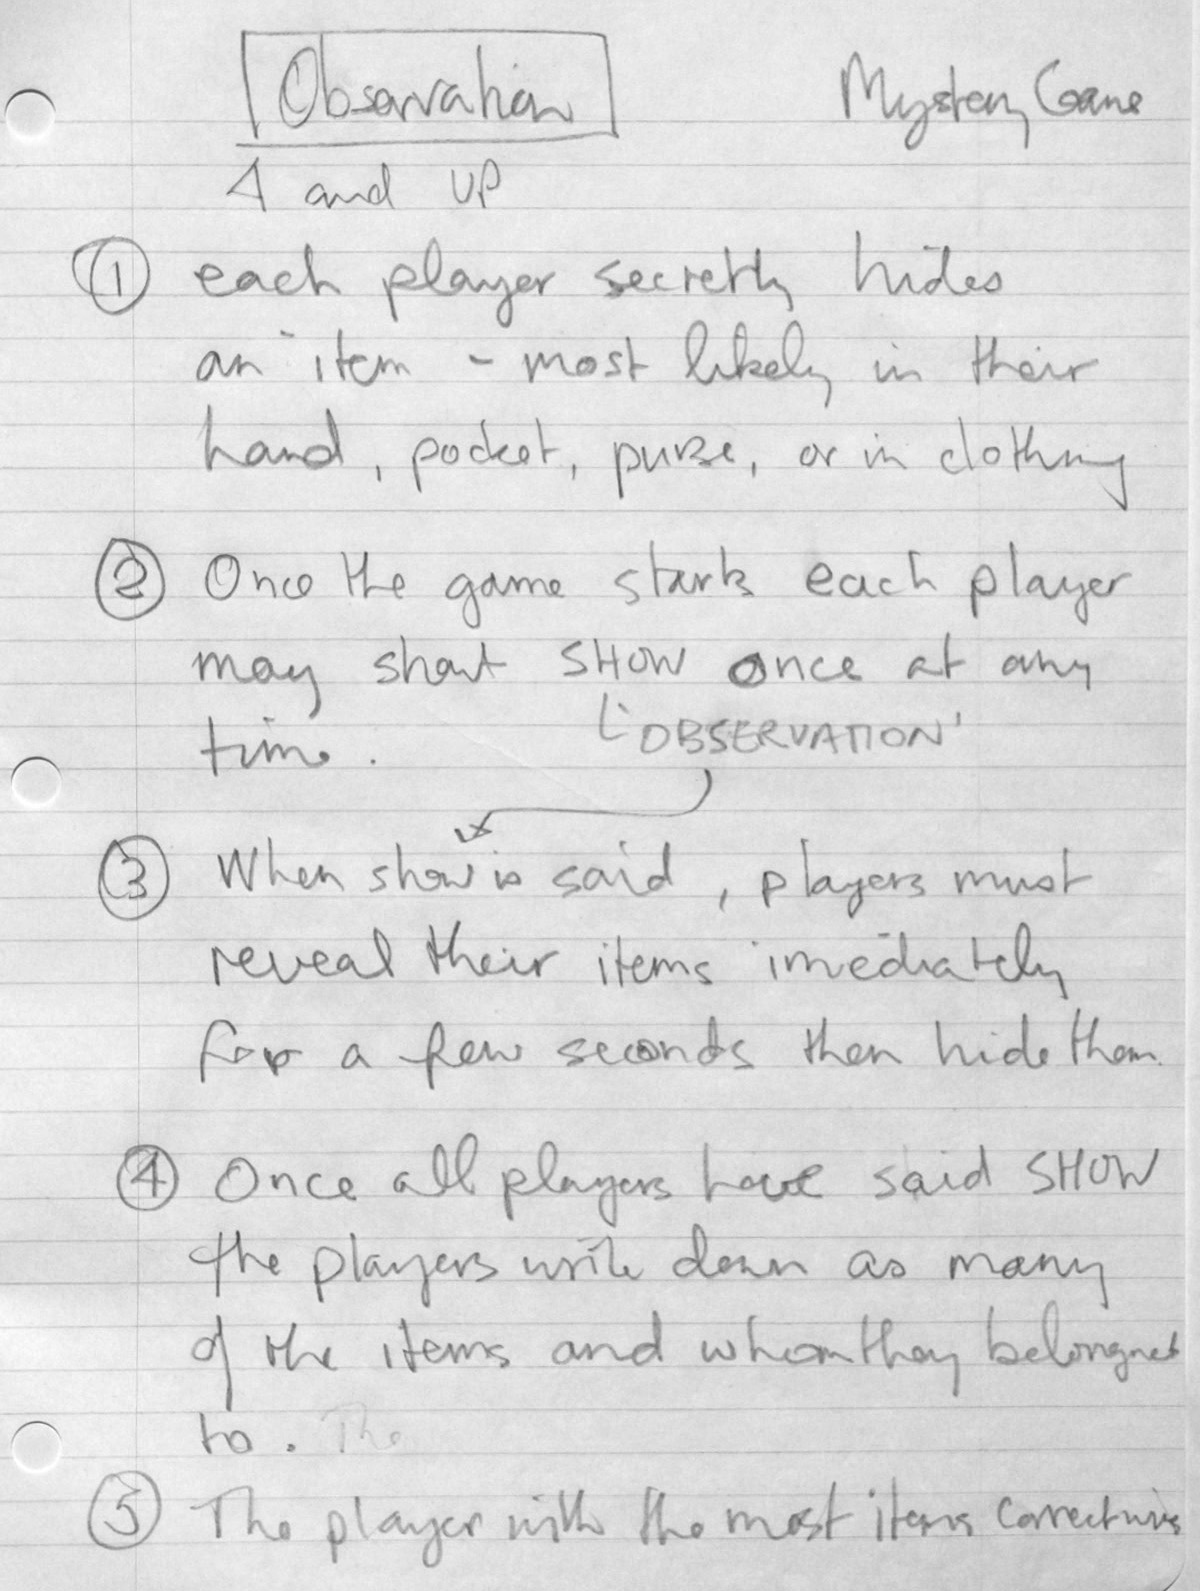 Observation
Mystery Game
4 and UP
① each player secretly hides
an item - most likely in their
hand, pocket, purse, or in clothing
② Once the game starts each player
may shout SHOW once at any
time.
'OBSERVATION'
③ When show is said, players must
reveal their items imediately
for a few seconds then hide them.
④ Once all players have said SHOW
the players write down as many
of the items and whom they belonged
to. The
⑤ The player with the most items correct wins